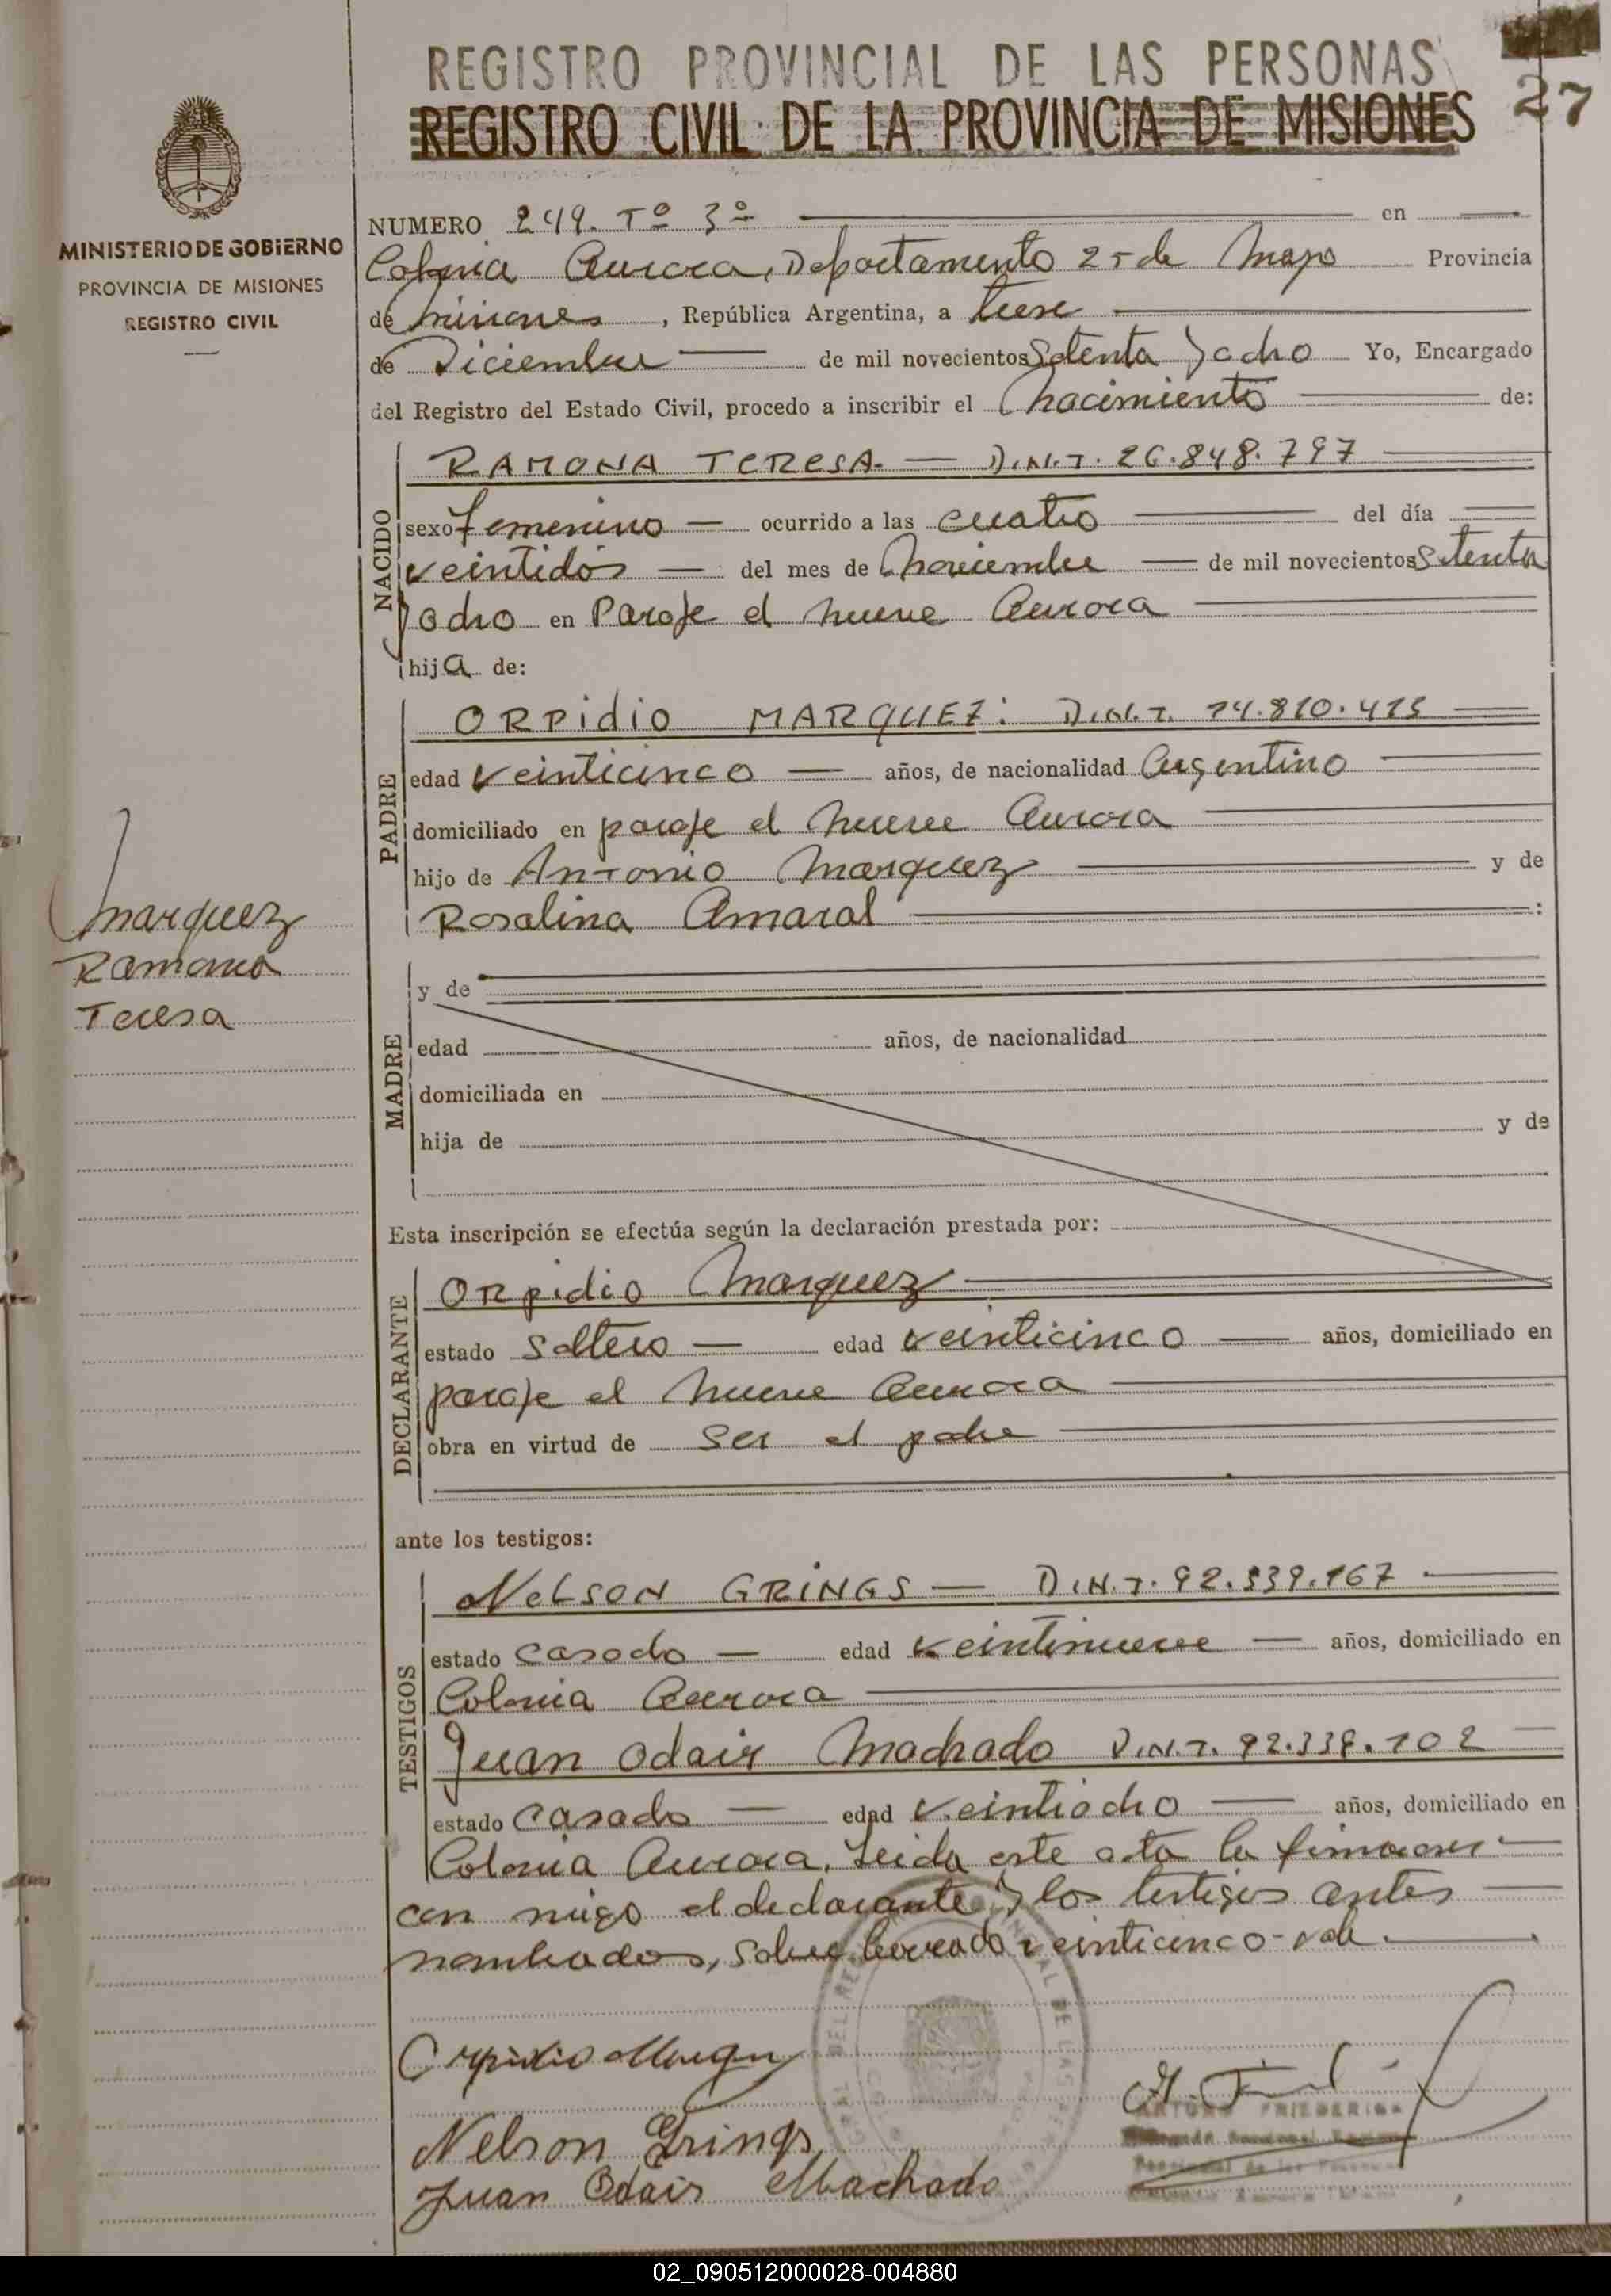 REGISTRO PROVINCIAL DE LAS PERSONAS
REGISTRO CIVIL DE LA PROVINCIA DE MISIONES
27
MINISTERIO DE GOBIERNO
PROVINCIA DE MISIONES
REGISTRO CIVIL
NUMERO 249. Tº 3º en
Colonia Aurora, Departamento 25 de Mayo Provincia
de Misiones, República Argentina, a trese
de Diciembre de mil novecientos Setenta y ocho Yo, Encargado
del Registro del Estado Civil, procedo a inscribir el Nacimiento de:
NACIDO
RAMONA TERESA. — D.N.I. 26.848.797
sexo femenino — ocurrido a las cuatro del día
veintidos — del mes de Noviembre — de mil novecientos Setenta
y ocho en Paraje el nueve Aurora
hija de:
PADRE
ORPidio MARQUEZ: D.N.I. 14.810.415
edad veinticinco — años, de nacionalidad Argentino
domiciliado en paraje el nueve Aurora
hijo de Antonio Marquez y de
Rosalina Amaral :
Marquez
Ramona
Teresa
MADRE
y de
edad años, de nacionalidad
domiciliada en
hija de y de
Esta inscripción se efectúa según la declaración prestada por:
DECLARANTE
ORpidio Marquez
estado Soltero — edad veinticinco — años, domiciliado en
paraje el nueve Aurora
obra en virtud de ser el padre
ante los testigos:
TESTIGOS
NELSON GRINGS — D.N.I. 92.339.167
estado casado — edad veintinueve — años, domiciliado en
Colonia Aurora
Juan Odair Machado D.N.I. 92.339.102
estado casado — edad veintiocho — años, domiciliado en
Colonia Aurora, Leida este acta la firman
con migo el declarante y los testigos antes
nombrados, sobre borrado veinticinco - vale.
Orpidio Marquez
Nelson Grings
Juan Odair Machado
ARTURO FRIEDERICH
02_090512000028-004880